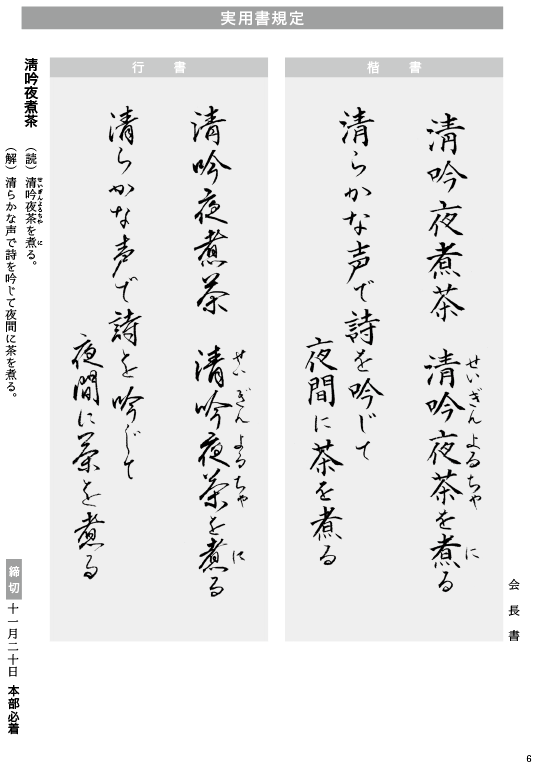 実用書規定
楷書
清吟夜煮茶 清吟夜茶を煮る
せいぎんよるちゃ に
清らかな声で詩を吟じて
夜間に茶を煮る
行書
清吟夜煮茶 清吟夜茶を煮る
せいぎんよるちゃ に
清らかな声で詩を吟じて
夜間に茶を煮る
会長書
清吟夜煮茶
(読)清吟夜茶を煮る。
せいぎんよるちゃ に
(解)清らかな声で詩を吟じて夜間に茶を煮る。
締切 十一月二十日 本部必着
6